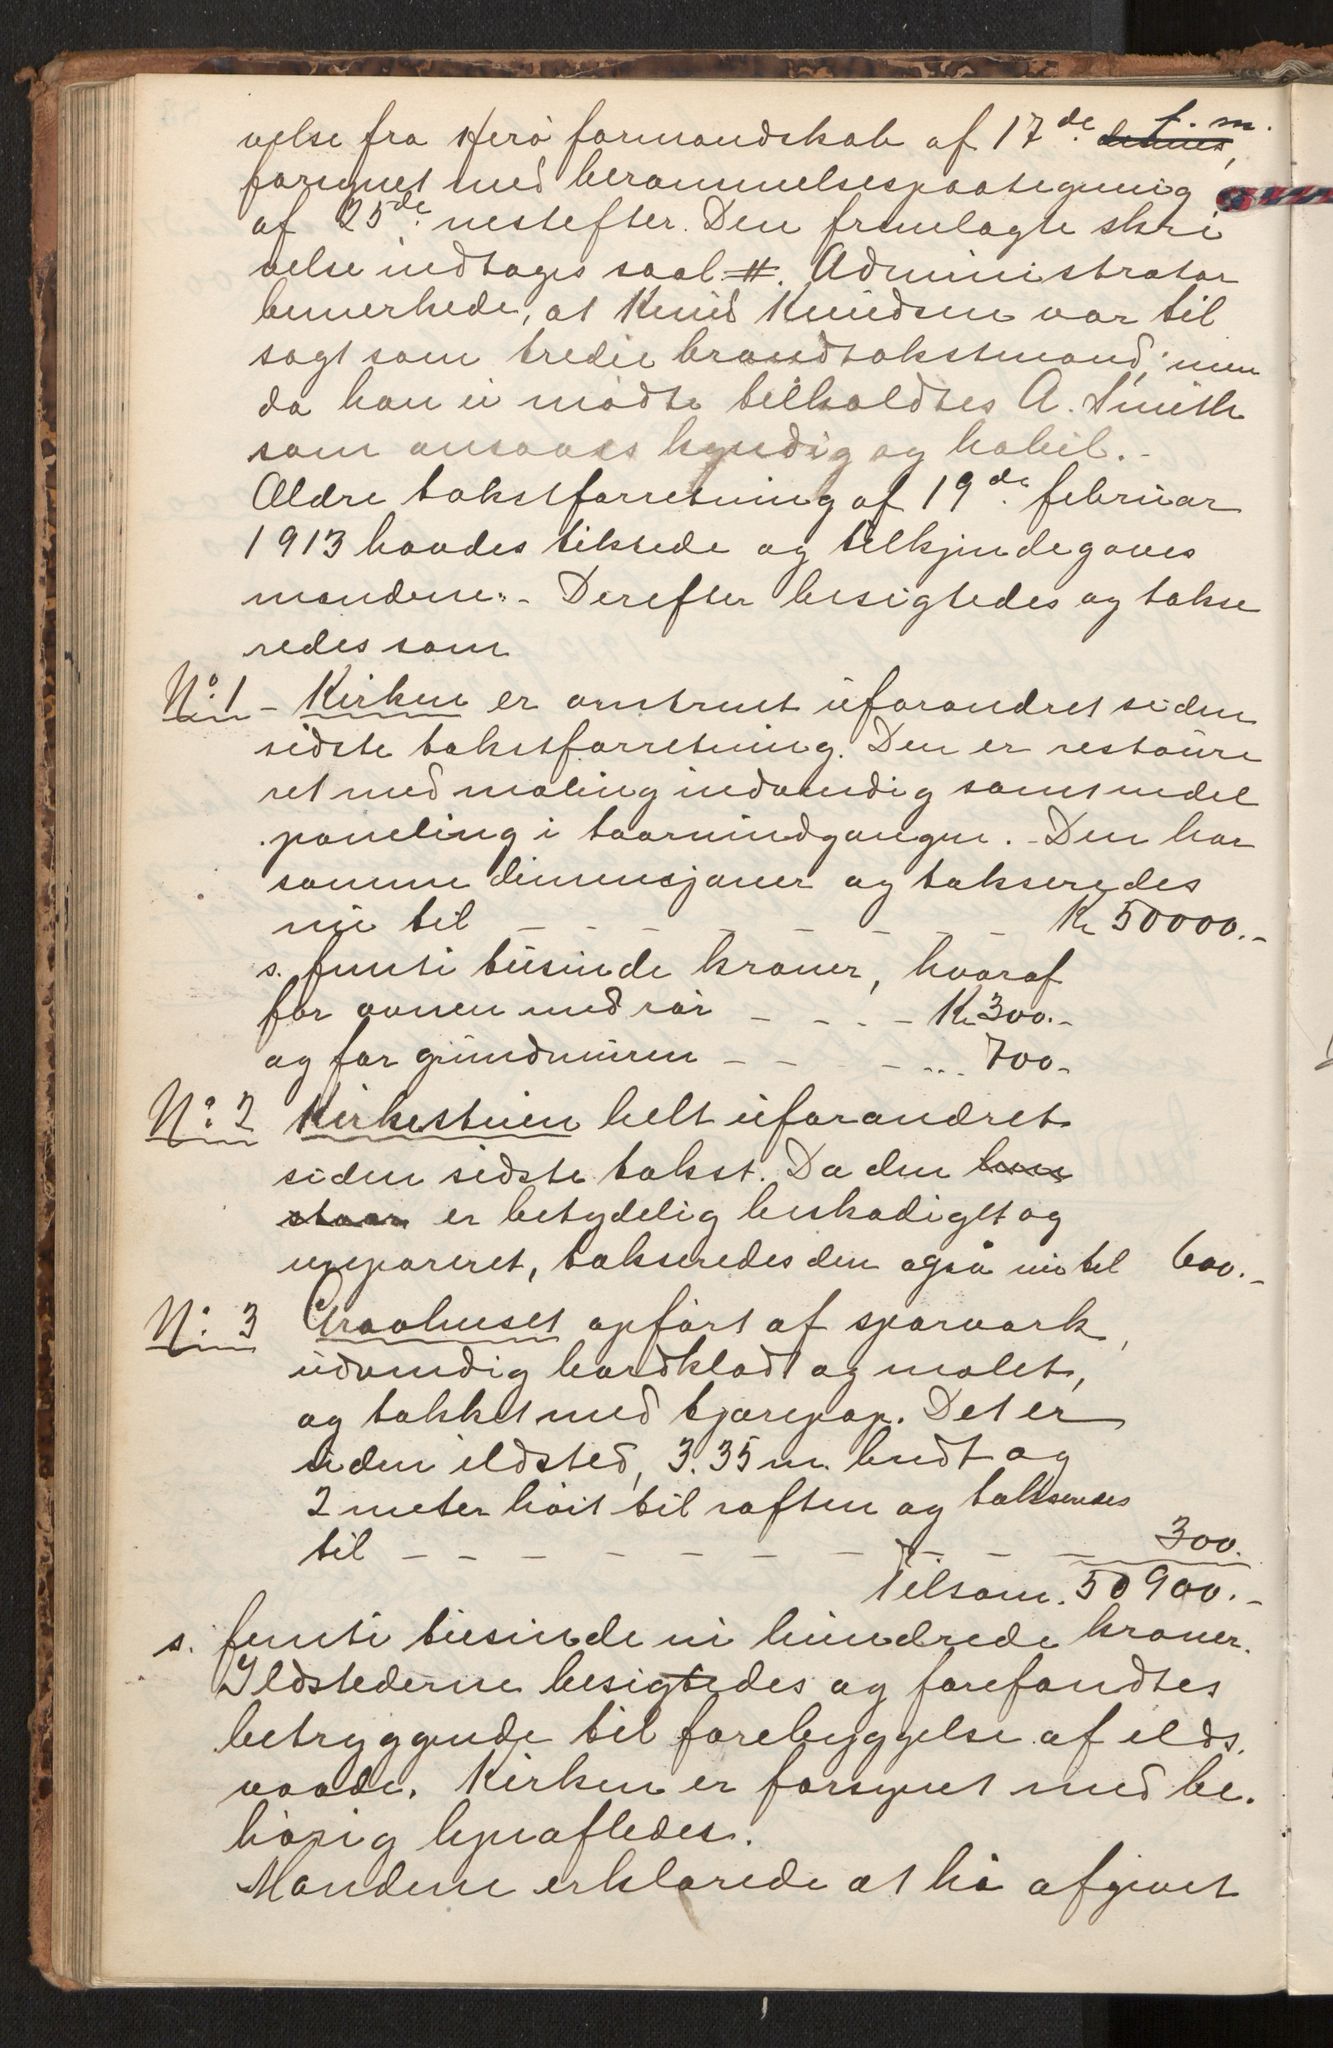 velse fra Herö formandskab af 17de f. m.
forsynet med berammelsespaategning
af 25de nestefter. Den fremlagte skri
velse indtages saal. #. Administrator
bemerkede, at Knud Knudsen var til
sagt som tredie brandtakstmand; men
da han ei mödte tilkaldtes A. Smith
som ansaaes kyndig og habil. -
Ældre takstforretning af 19de februar
1913 havdes tilstede og tilkjendegaves
mændene. - Derefter besigtedes og takse
redes som
No. 1 - Kirken er omtrent uforandret siden
sidste takstforretning. Den er restaure
ret med maling indvendig samt endel
paneling i taarnindgangen. - Den har
samme dimensjoner og takseredes
nu til - - - - - - - Kr 50000.-
s. femti tusinde kroner, hvoraf
for ovnen med rör - - - - Kr 300.-
og for grundmuren - - - - ... 700.-
No. 2 Kirkestuen helt uforandret
siden sidste takst. Da den
staar er betydelig beskadiget og
ureparert, takseredes den også nu til 600.-
No. 3 Gravhuset opfört af sparverk,
udvendig bordklædt og malet,
og tækket med tjærepap. Det er
uden ildsted, 3.35 m. bredt og
2 meter höit til raften og takseredes
til - - - - - - - - - - 300.
Tilsam. 50900.-
s. femti tusinde ni hundrede kroner.
Ildstederne besigtedes og forefandtes
betryggende til forebyggelse af ilds
vaade. Kirken er forsynet med be-
hörig lynafleder.
Mændene erklærede at ha afgivet